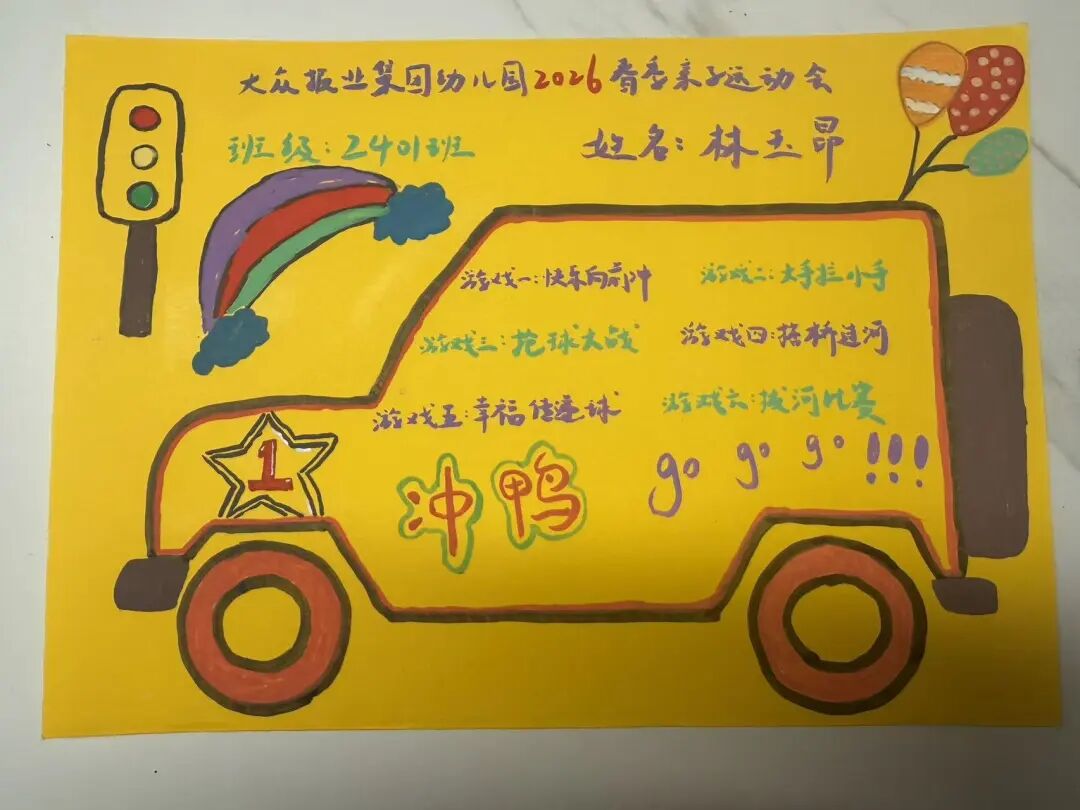 大众报业集团幼儿园2026春季亲子运动会
班级:2401班
姓名:林玉昂
游戏一:快乐向前冲
游戏二:大手拉小手
游戏三:抢球大战
游戏四:搭桥过河
游戏五:幸福传递球
游戏六:拔河比赛
1
冲鸭
go go go !!!